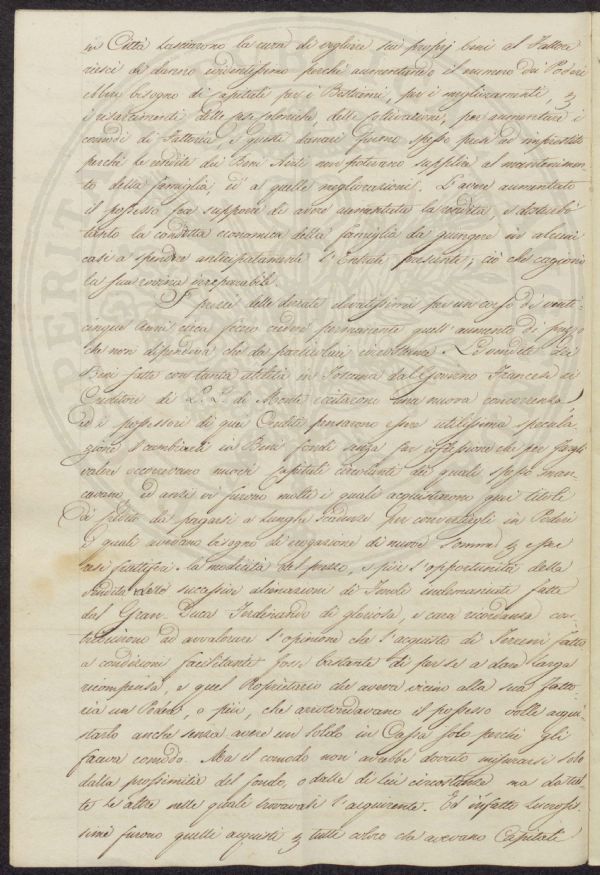 in Città lasciarono la cura di vegliare sui proprj beni al Fattore
riescì di danno evidentissimo perchè aumentando il numero dei Poderi
ebbero bisogno di capitali per i Bestiami, per i miglioramenti, e
i risarcimenti delle case coloniche, delle coltivazioni, per aumentare i
comodi di Fattoria, e questi danari furono spesso presi ad imprestito
perchè le rendite dei Beni Aviti non potevano supplire al mantenimen-
to della famiglia, ed a quelle megliorazioni. L'avere aumentato
il possesso fea supporre di avere aumentata la rendita, e disturbò
tanto la condotta economica della famiglia da giungere in alcuni
casi a spendere anticipatamente l'Entrate presunte; ciò che cagionò
la sua rovina irreparabile.
I prezzi delle derrate elevatissimi per un corso di venti-
cinque anni circa fecero credere permanente quell'aumento di prezzo
che non dipendeva che da particolari circostanze. Le vendite dei
Beni fatte con tanta utilità in Toscana dal Governo Francese ai
Creditori di LL. di Monte eccitarono una nuova concorrenza
ed i possessori di quei Crediti pensarono essere utilissima specula-
zione il cambiarli in Beni fondi senza far riflessione che per fargli
valere occorrevano nuovi Capitali circolanti dei quali spesso man-
cavano, ed anzi vi furono molti i quali acquistarono quei titoli
a fido da pagarsi a lunghe scadenze per convertirgli in Poderi
i quali avevano bisogno di erogazione di nuove somme per essere
resi fruttiferi. La modicità del prezzo, e più l'opportunità della
vendita delle successive alienazioni di fondi inclemanente fatte
dal Gran-Duca Ferdinando di gloriosa, e cara ricordanza con-
tribuirono ad avvalorare l'opinione che l'acquisto di Terreni fatto
a condizioni facilitanti fosse bastante di per se a dare larga
ricompensa, e quel Proprietario che aveva vicino alla sua Fatto-
ria un Podere, o più, che arrotondavano il possesso volle acqui-
starlo anche senza avere un soldo in Cassa solo perchè gli
faceva comodo. Ma il comodo non avrebbe dovuto misurarsi solo
dalla prossimità del fondo, o dalle di lui circostanze ma da tut-
te le altre nelle quali trovavasi l'acquirente. Ed infatti lucrosis-
simi furono quelli acquisti per tutti coloro che avevano Capitali